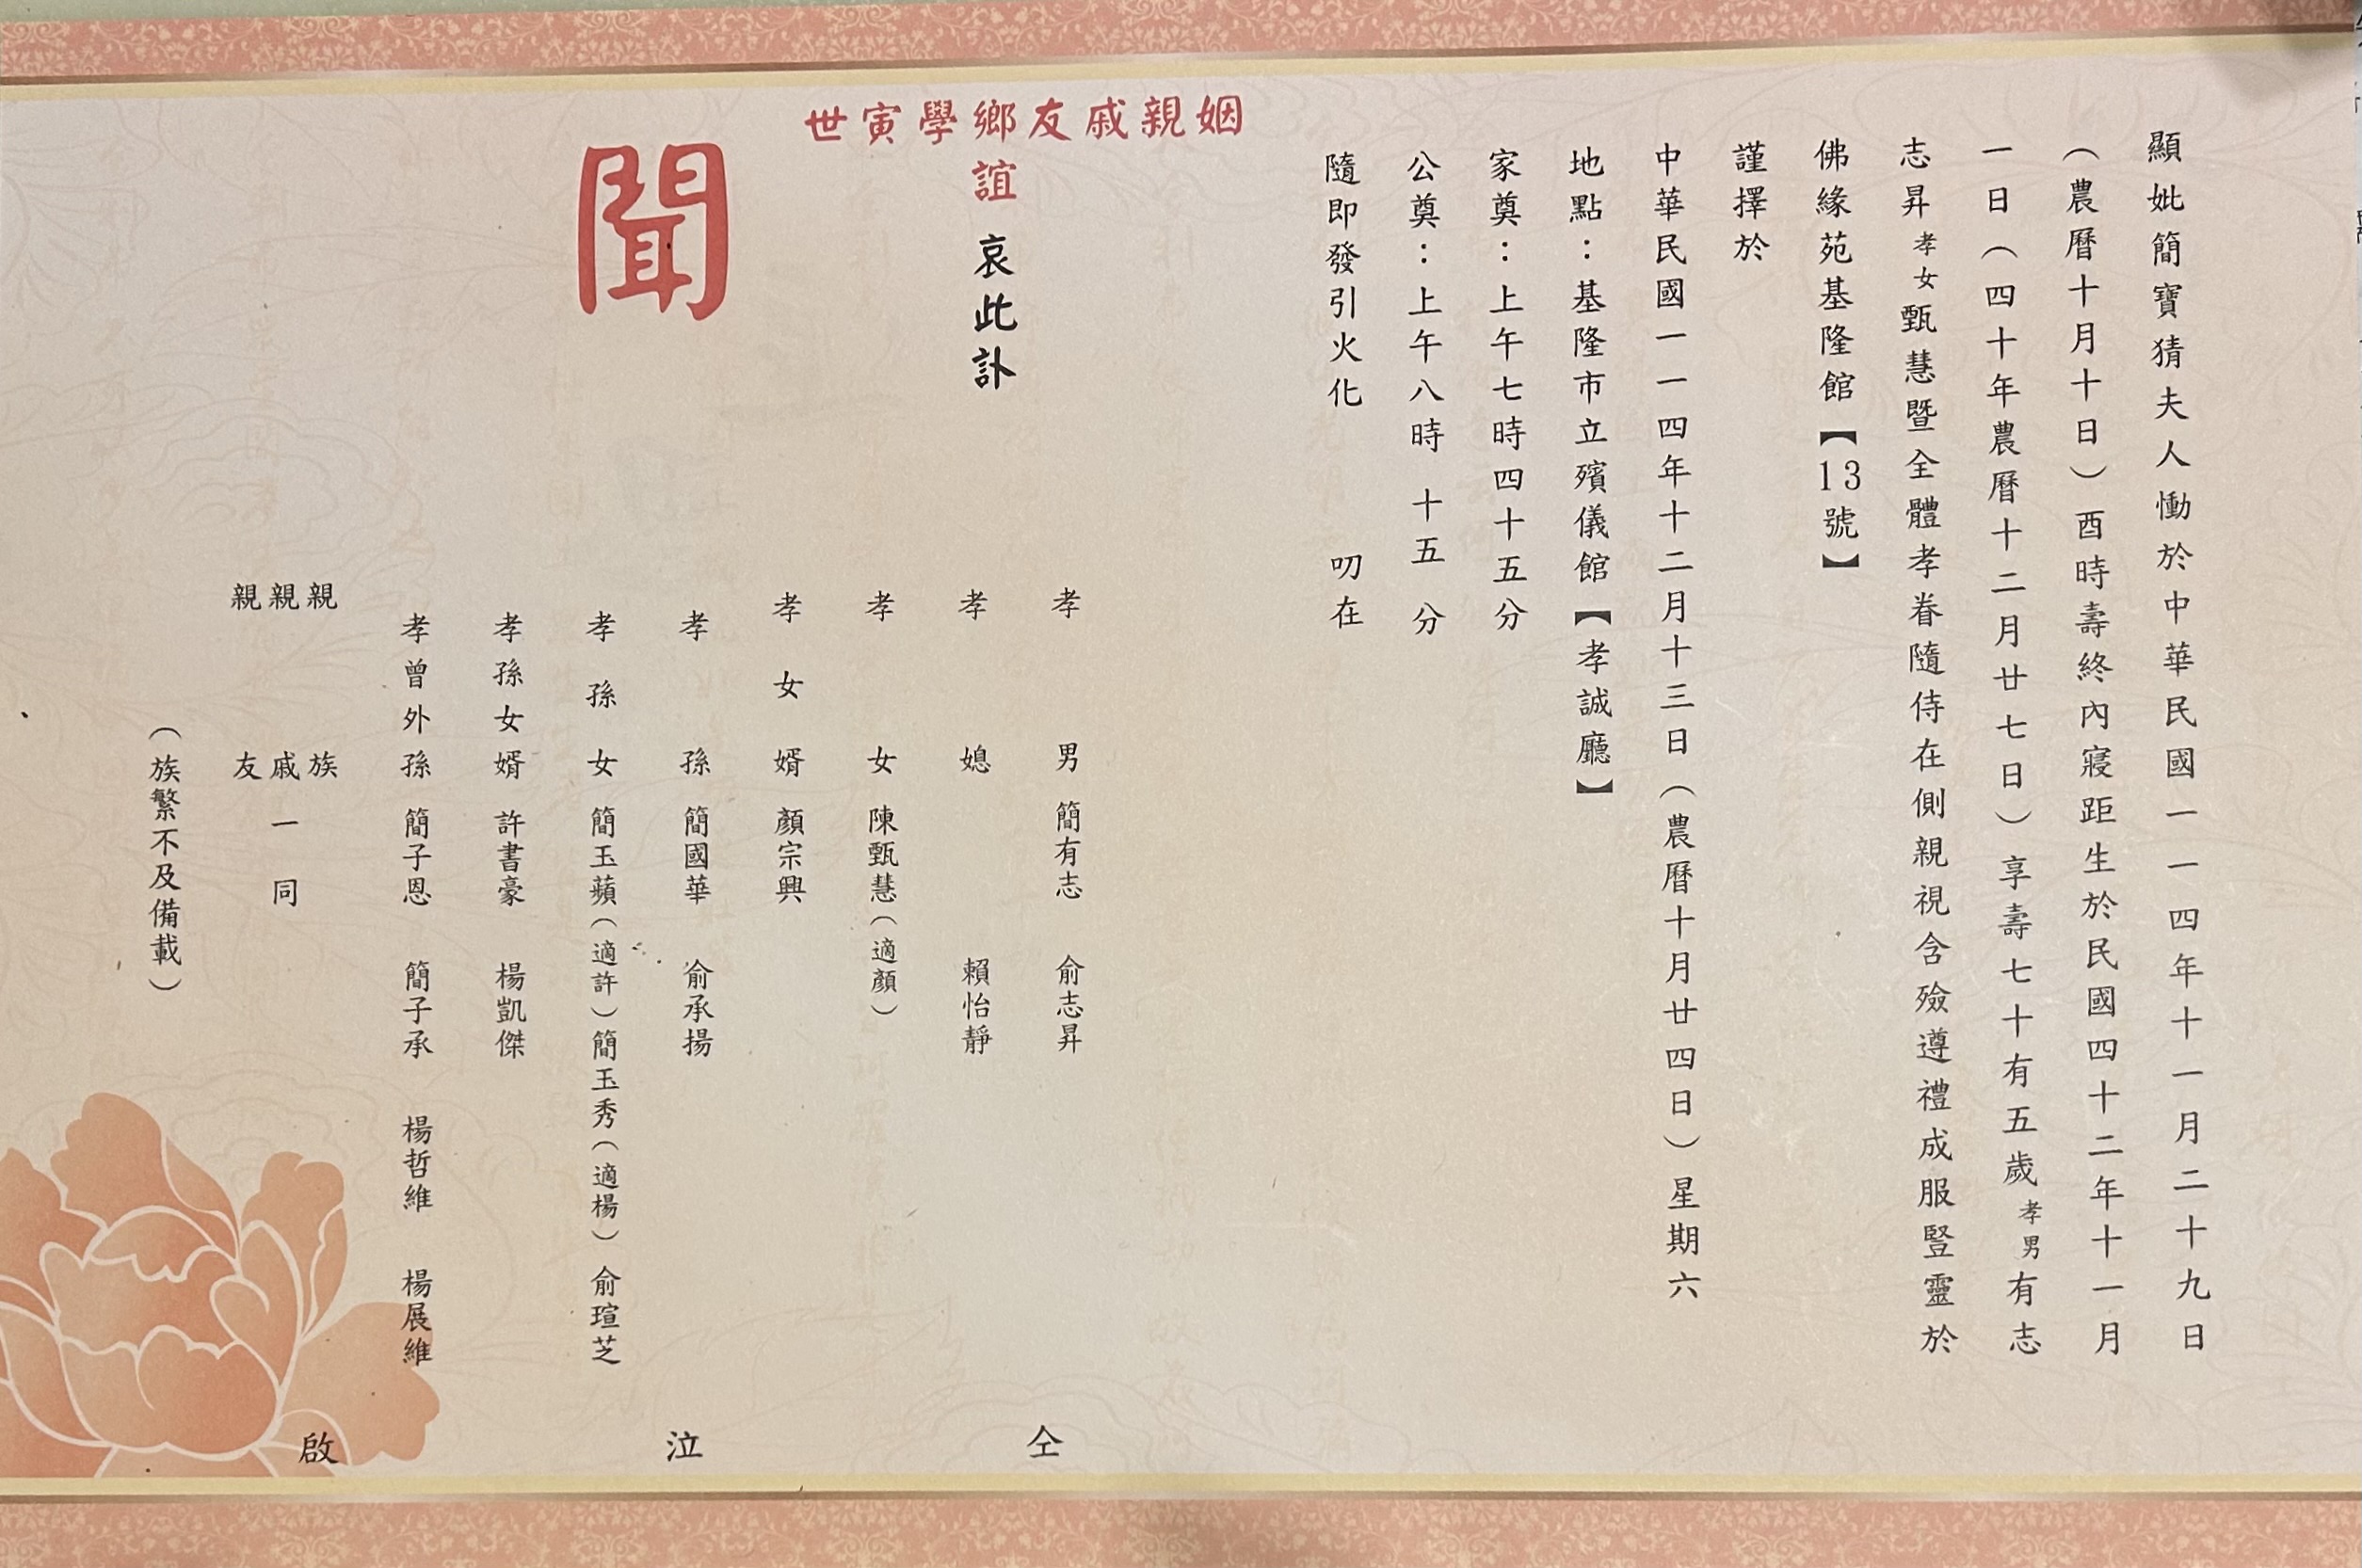 顯妣簡寶猜夫人慟於中華民國一一四年十一月二十九日
（農曆十月十日）酉時壽終內寢距生於民國四十二年十一月
一日（四十年農曆十二月廿七日）享壽七十有五歲孝男有志
志昇孝女甄慧暨全體孝眷隨侍在側親視含殮遵禮成服豎靈於
佛緣苑基隆館【13號】
謹擇於
中華民國一一四年十二月十三日（農曆十月廿四日）星期六
地點：基隆市立殯儀館【孝誠廳】
家奠：上午七時四十五分
公奠：上午八時 十五 分
隨即發引火化 叨在
姻親戚友鄉學寅世
誼 哀此訃
聞
孝男 簡有志 俞志昇
孝媳 賴怡靜
孝女 陳甄慧（適顏）
孝女婿 顏宗興
孝孫 簡國華 俞承揚
孝孫女 簡玉蘋（適許）簡玉秀（適楊）俞瑄芝
孝孫女婿 許書豪 楊凱傑
孝曾外孫 簡子恩 簡子承 楊哲維 楊展維
親族
親戚一同
親友
（族繁不及備載）
仝 泣 啟